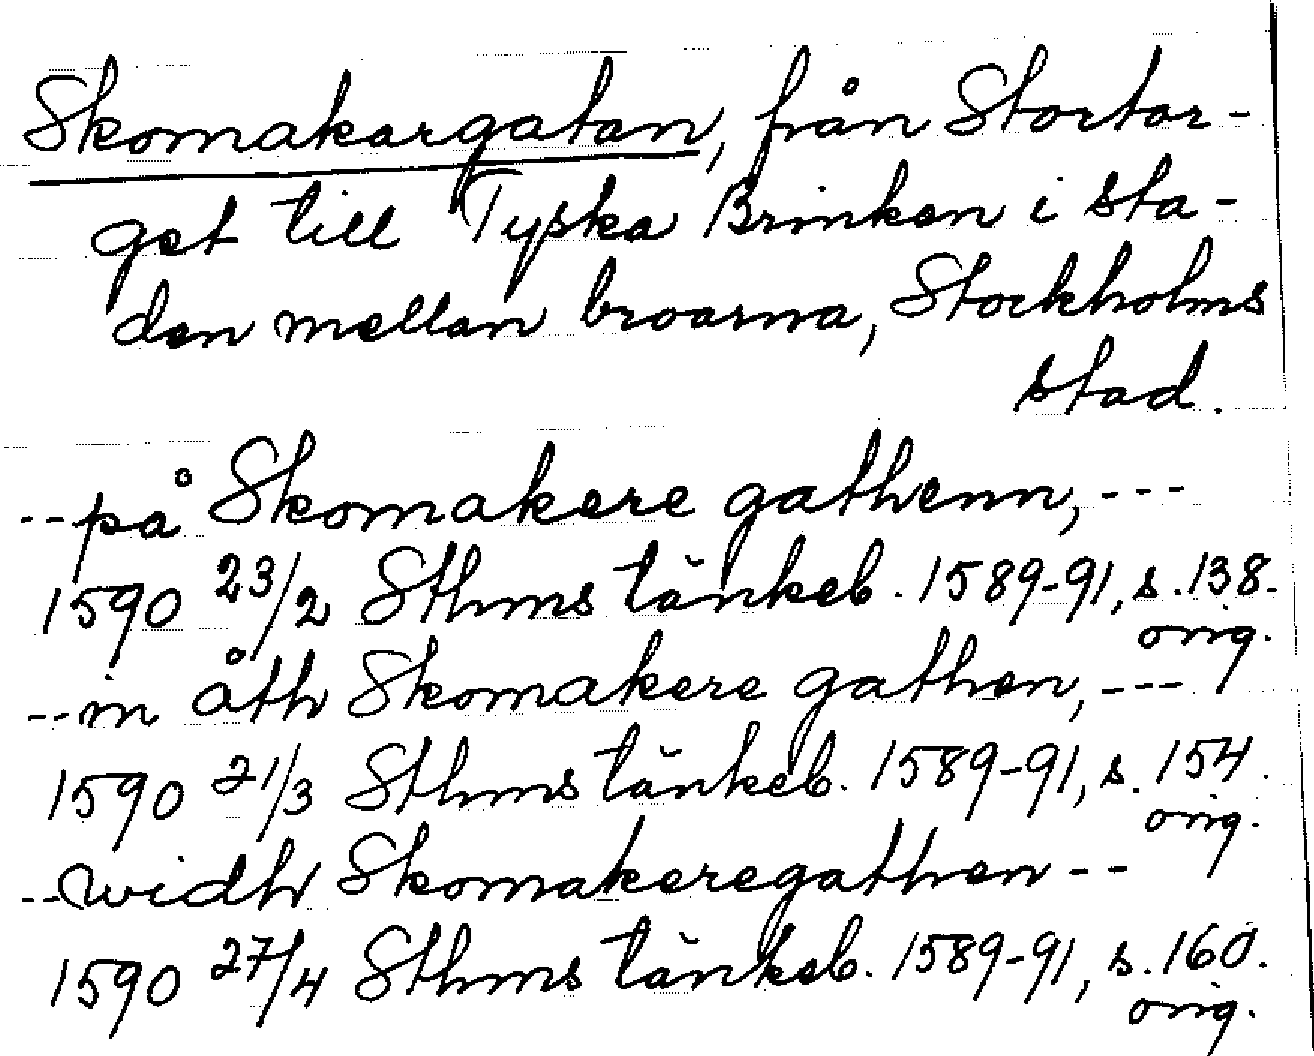 Skomakargatan, från Stortor-
get till Tyska Brinken i sta-
den mellan broarna, Stockholms
stad.
--på Skomakere gathenn,---
1590 23/2 Sthms tänkeb. 1589-91, s. 138.
orig.
--in åth Skomakere gathen,---
1590 21/3 Sthms tänkeb. 1589-91, s. 154.
orig.
--widh Skomakeregathen--
1590 27/4 Sthms tänkeb. 1589-91, s. 160.
orig.